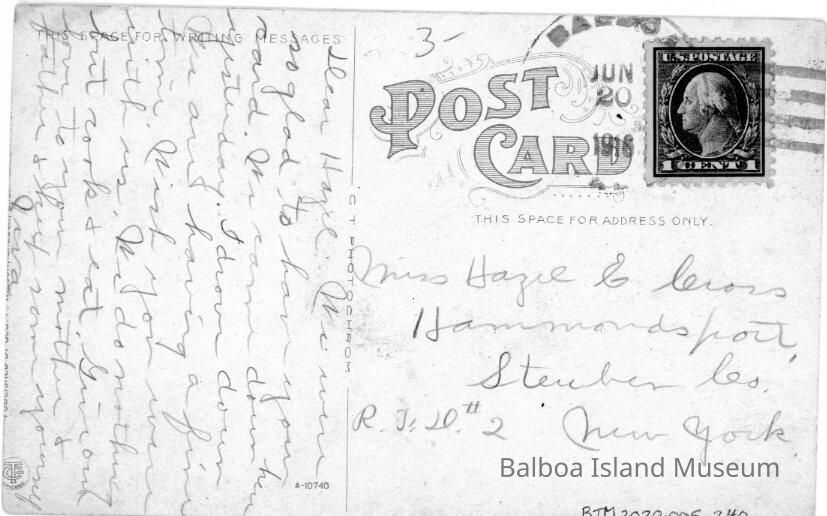 THIS SPACE FOR WRITING MESSAGES
Dear Hazel. We were
so glad to have your
card. We came down here
yesterday. I drove down
Are all having a fine
time. Wish you were
with us. We do nothing
but cook & eat. Give our
love to your mother &
father & keep some yourself
C T PHOTOCHROM
A-10740
3-
POST
CARD
THIS SPACE FOR ADDRESS ONLY.
JUN
20
1916
U.S. POSTAGE
1 CENT 1
Miss Hazel E Cross
Hammondsport,
Steuben Co.
R. F. D. # 2 New York
Balboa Island Museum